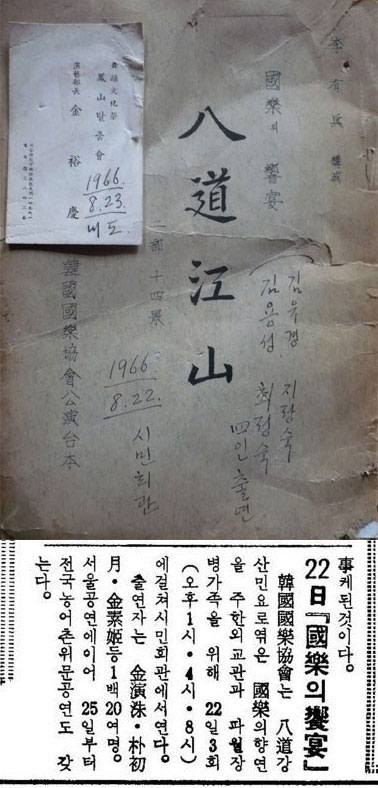 李有眞 構成
國樂의 饗宴
八道江山
二部 十四景
韓國國樂協會公演台本
김유경 지광숙
김용성 최정숙
四人 출연
1966
8.22. 시민회관
無形文化財
鳳山탈춤會
演藝部長
金裕慶
1966
8.23.
事케된것이다。
22日『國樂의饗宴』
韓國國樂協會는 八道강
산민요로엮은 國樂의향연
을 주한외교관과 파월장
병가족을 위해 22일3회
(오후1시·4시·8시)
에걸쳐시민회관에서연다。
출연자는 金演洙·朴初
月·金素姬등1백20여명。
서울공연에이어 25일부터
전국농어촌위문공연도 갖
는다。